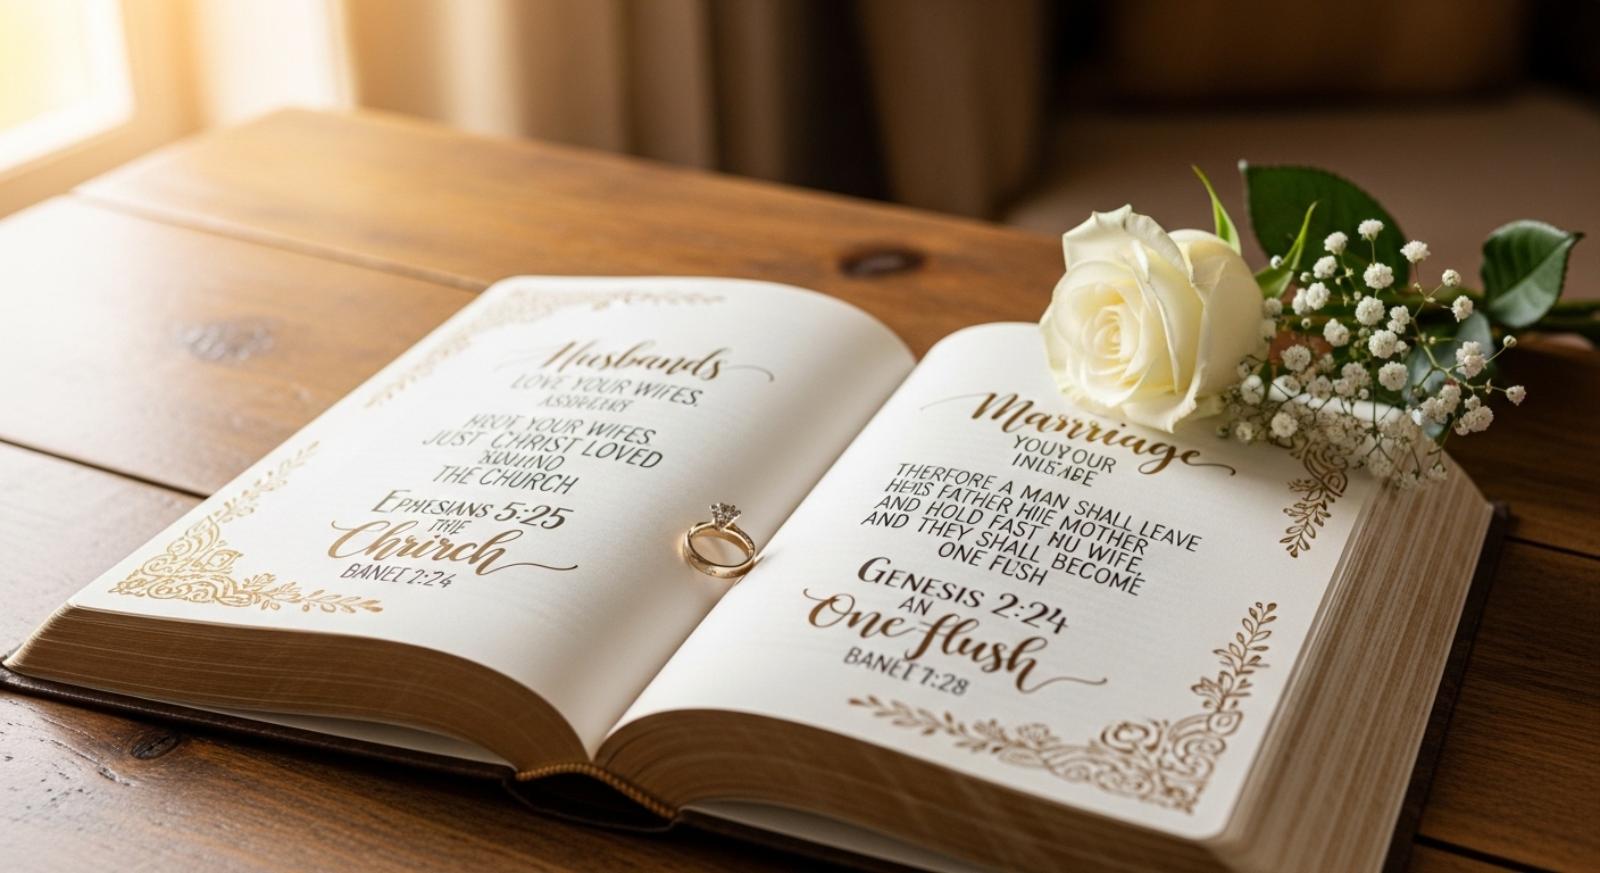 Husbands
LOVE YOUR WIFES.
YOUR WIFES
JUST CHRIST LOVED
THE CHURCH
EPHESIANS 5:25
THIE
Chrirch
BANEE 2:24
Marrriage
YOUYOUR
THEREFORE A MAN SHALL LEAVE
HEIS FATHER HIE MOTHER
AND HOLD FAST HU WIFE,
AND THEY SHALL BECOME
ONE FUSH
GENESIS 2:24
AN
One flush
BANEE 7:28